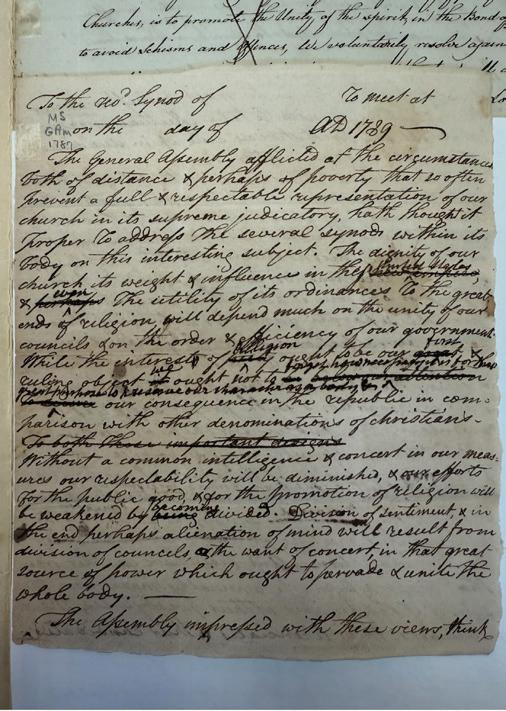 Churches, is to promote the Unity of the spirit, in the Bond of
to avoid Schisms and offences, We voluntarily resolve
To the revd. Synod of To meet at
MS
GAm
1787
on the day of AD 1789
The General Assembly afflicted at the circumstances
both of distance & perhaps of poverty that so often
prevent a full & respectable representation of our
church in its supreme judicatory, hath thought it
proper to address the several synods within its
body on this interesting subject. The dignity of our
church its weight & influence in the
& even perhaps The utility of its ordinances to the great
ends of religion, will depend much on the unity of our
councils & on the order & efficiency of our government.
While the interests of religion ought to be our first
ruling object we ought not to
our consequence in the republic in com-
parison with other denominations of christians.
To both these important designs
Without a common intelligence & concert in our meas-
ures our respectability will be diminished, & our efforts
for the public good, & for the promotion of religion will
be weakened by becoming divided. Division of sentiment, & in
the end perhaps alienation of mind will result from
division of councils, & the want of concert in that great
source of power which ought to pervade & unite the
whole body.
The Assembly impressed with these views, think